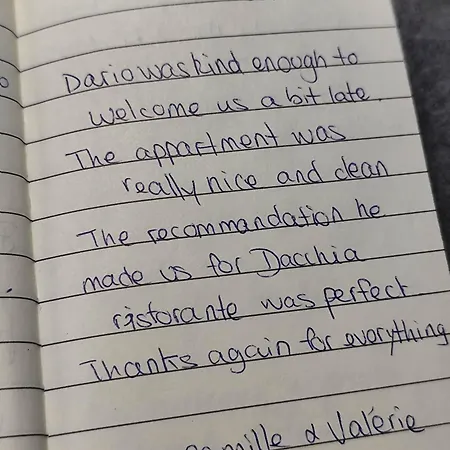 Dario was kind enough to
welcome us a bit late.
The appartment was
really nice and clean
The recommandation he
made us for Dacchia
ristorante was perfect
Thanks again for everything
& Valérie